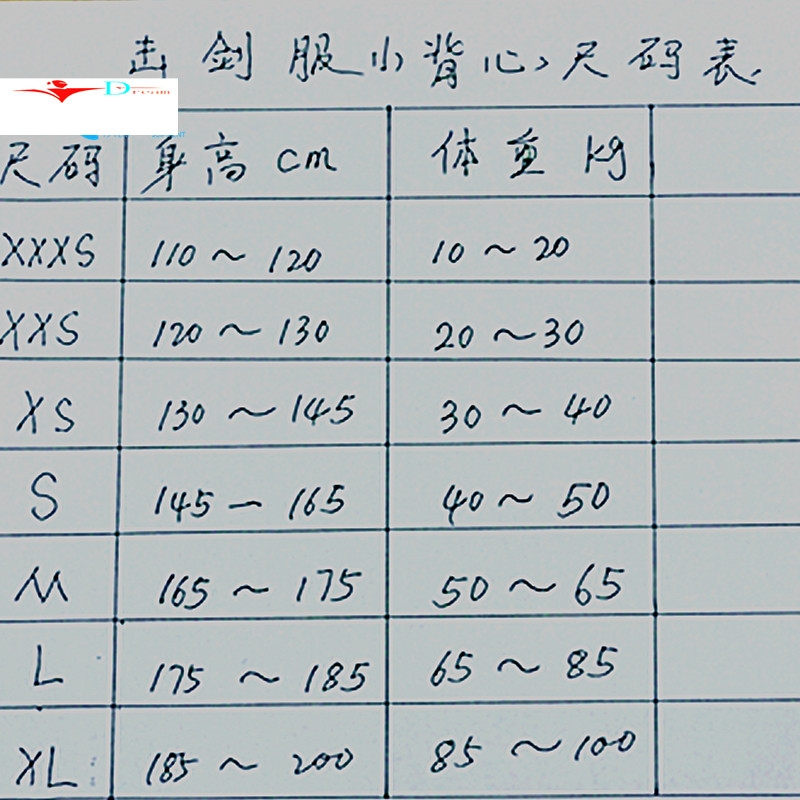 击剑服小背心尺码表
Dream
尺码 身高cm 体重kg
XXXS 110~120 10~20
XXS 120~130 20~30
XS 130~145 30~40
S 145—165 40~50
M 165~175 50~65
L 175~185 65~85
XL 185~200 85~100